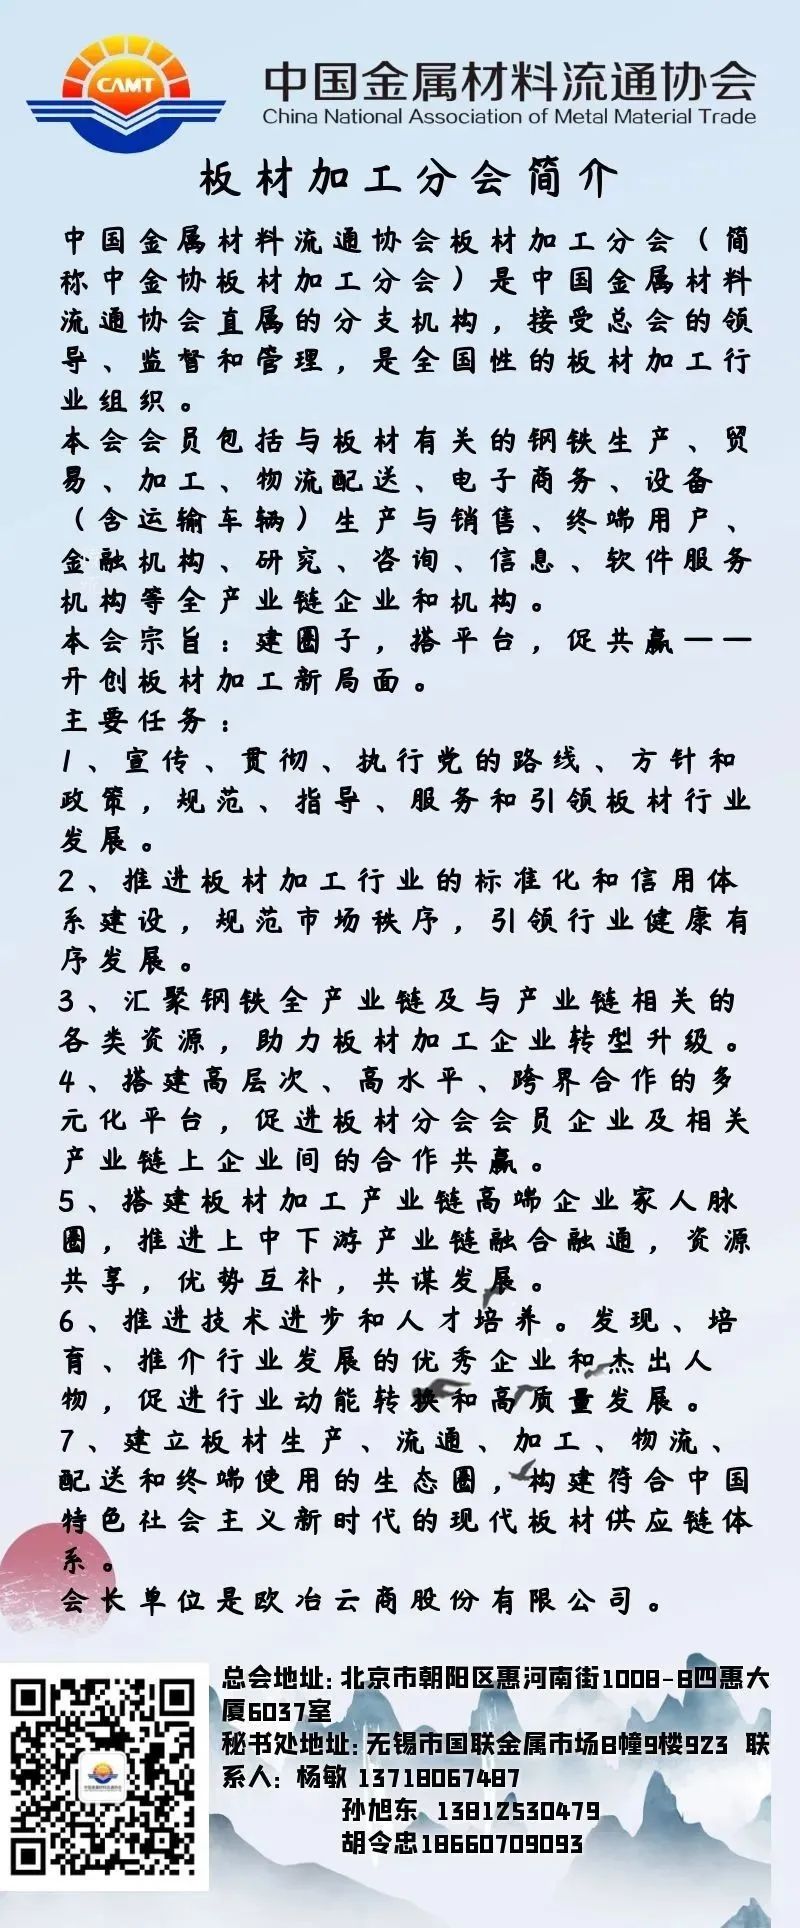 CAMT
中国金属材料流通协会
China National Association of Metal Material Trade
板材加工分会简介
中国金属材料流通协会板材加工分会（简
称中金协板材加工分会）是中国金属材料
流通协会直属的分支机构，接受总会的领
导、监督和管理，是全国性的板材加工行
业组织。
本会会员包括与板材有关的钢铁生产、贸
易、加工、物流配送、电子商务、设备
（含运输车辆）生产与销售、终端用户、
金融机构、研究、咨询、信息、软件服务
机构等全产业链企业和机构。
本会宗旨：建圈子，搭平台，促共赢——
开创板材加工新局面。
主要任务：
1、宣传、贯彻、执行党的路线、方针和
政策，规范、指导、服务和引领板材行业
发展。
2、推进板材加工行业的标准化和信用体
系建设，规范市场秩序，引领行业健康有
序发展。
3、汇聚钢铁全产业链及与产业链相关的
各类资源，助力板材加工企业转型升级。
4、搭建高层次、高水平、跨界合作的多
元化平台，促进板材分会会员企业及相关
产业链上企业间的合作共赢。
5、搭建板材加工产业链高端企业家人脉
圈，推进上中下游产业链融合融通，资源
共享，优势互补，共谋发展。
6、推进技术进步和人才培养。发现、培
育、推介行业发展的优秀企业和杰出人
物，促进行业动能转换和高质量发展。
7、建立板材生产、流通、加工、物流、
配送和终端使用的生态圈，构建符合中国
特色社会主义新时代的现代板材供应链体
系。
会长单位是欧冶云商股份有限公司。
总会地址：北京市朝阳区惠河南街1008-B四惠大
厦6037室
秘书处地址：无锡市国联金属市场B幢9楼923 联
系人：杨敏 13718067487
孙旭东 13812530479
胡令忠18660709093
中国金属材料流通协会